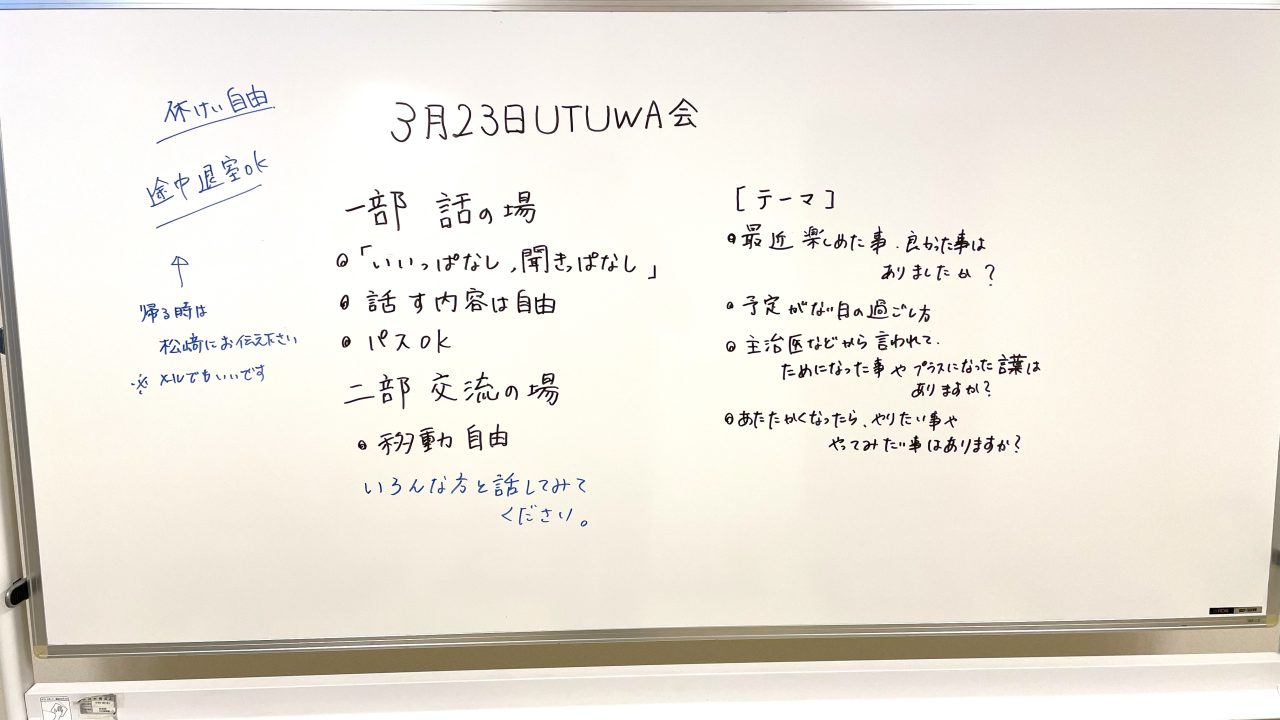 休けい自由
途中退室ok
↑
帰る時は
松﨑にお伝え下さい
※ メールでもいいです
3月23日UTUWA会
一部 話の場
•「いいっぱなし,聞きっぱなし」
• 話す内容は自由
• パスOK
二部 交流の場
• 移動自由
いろんな方と話してみて
ください。
[テーマ]
• 最近 楽しめた事、良かった事は
ありましたか?
• 予定がない日の過ごし方
• 主治医などから言われて、
ためになった事やプラスになった言葉は
ありますか?
• あたたかくなったら、やりたい事や
やってみたい事はありますか?